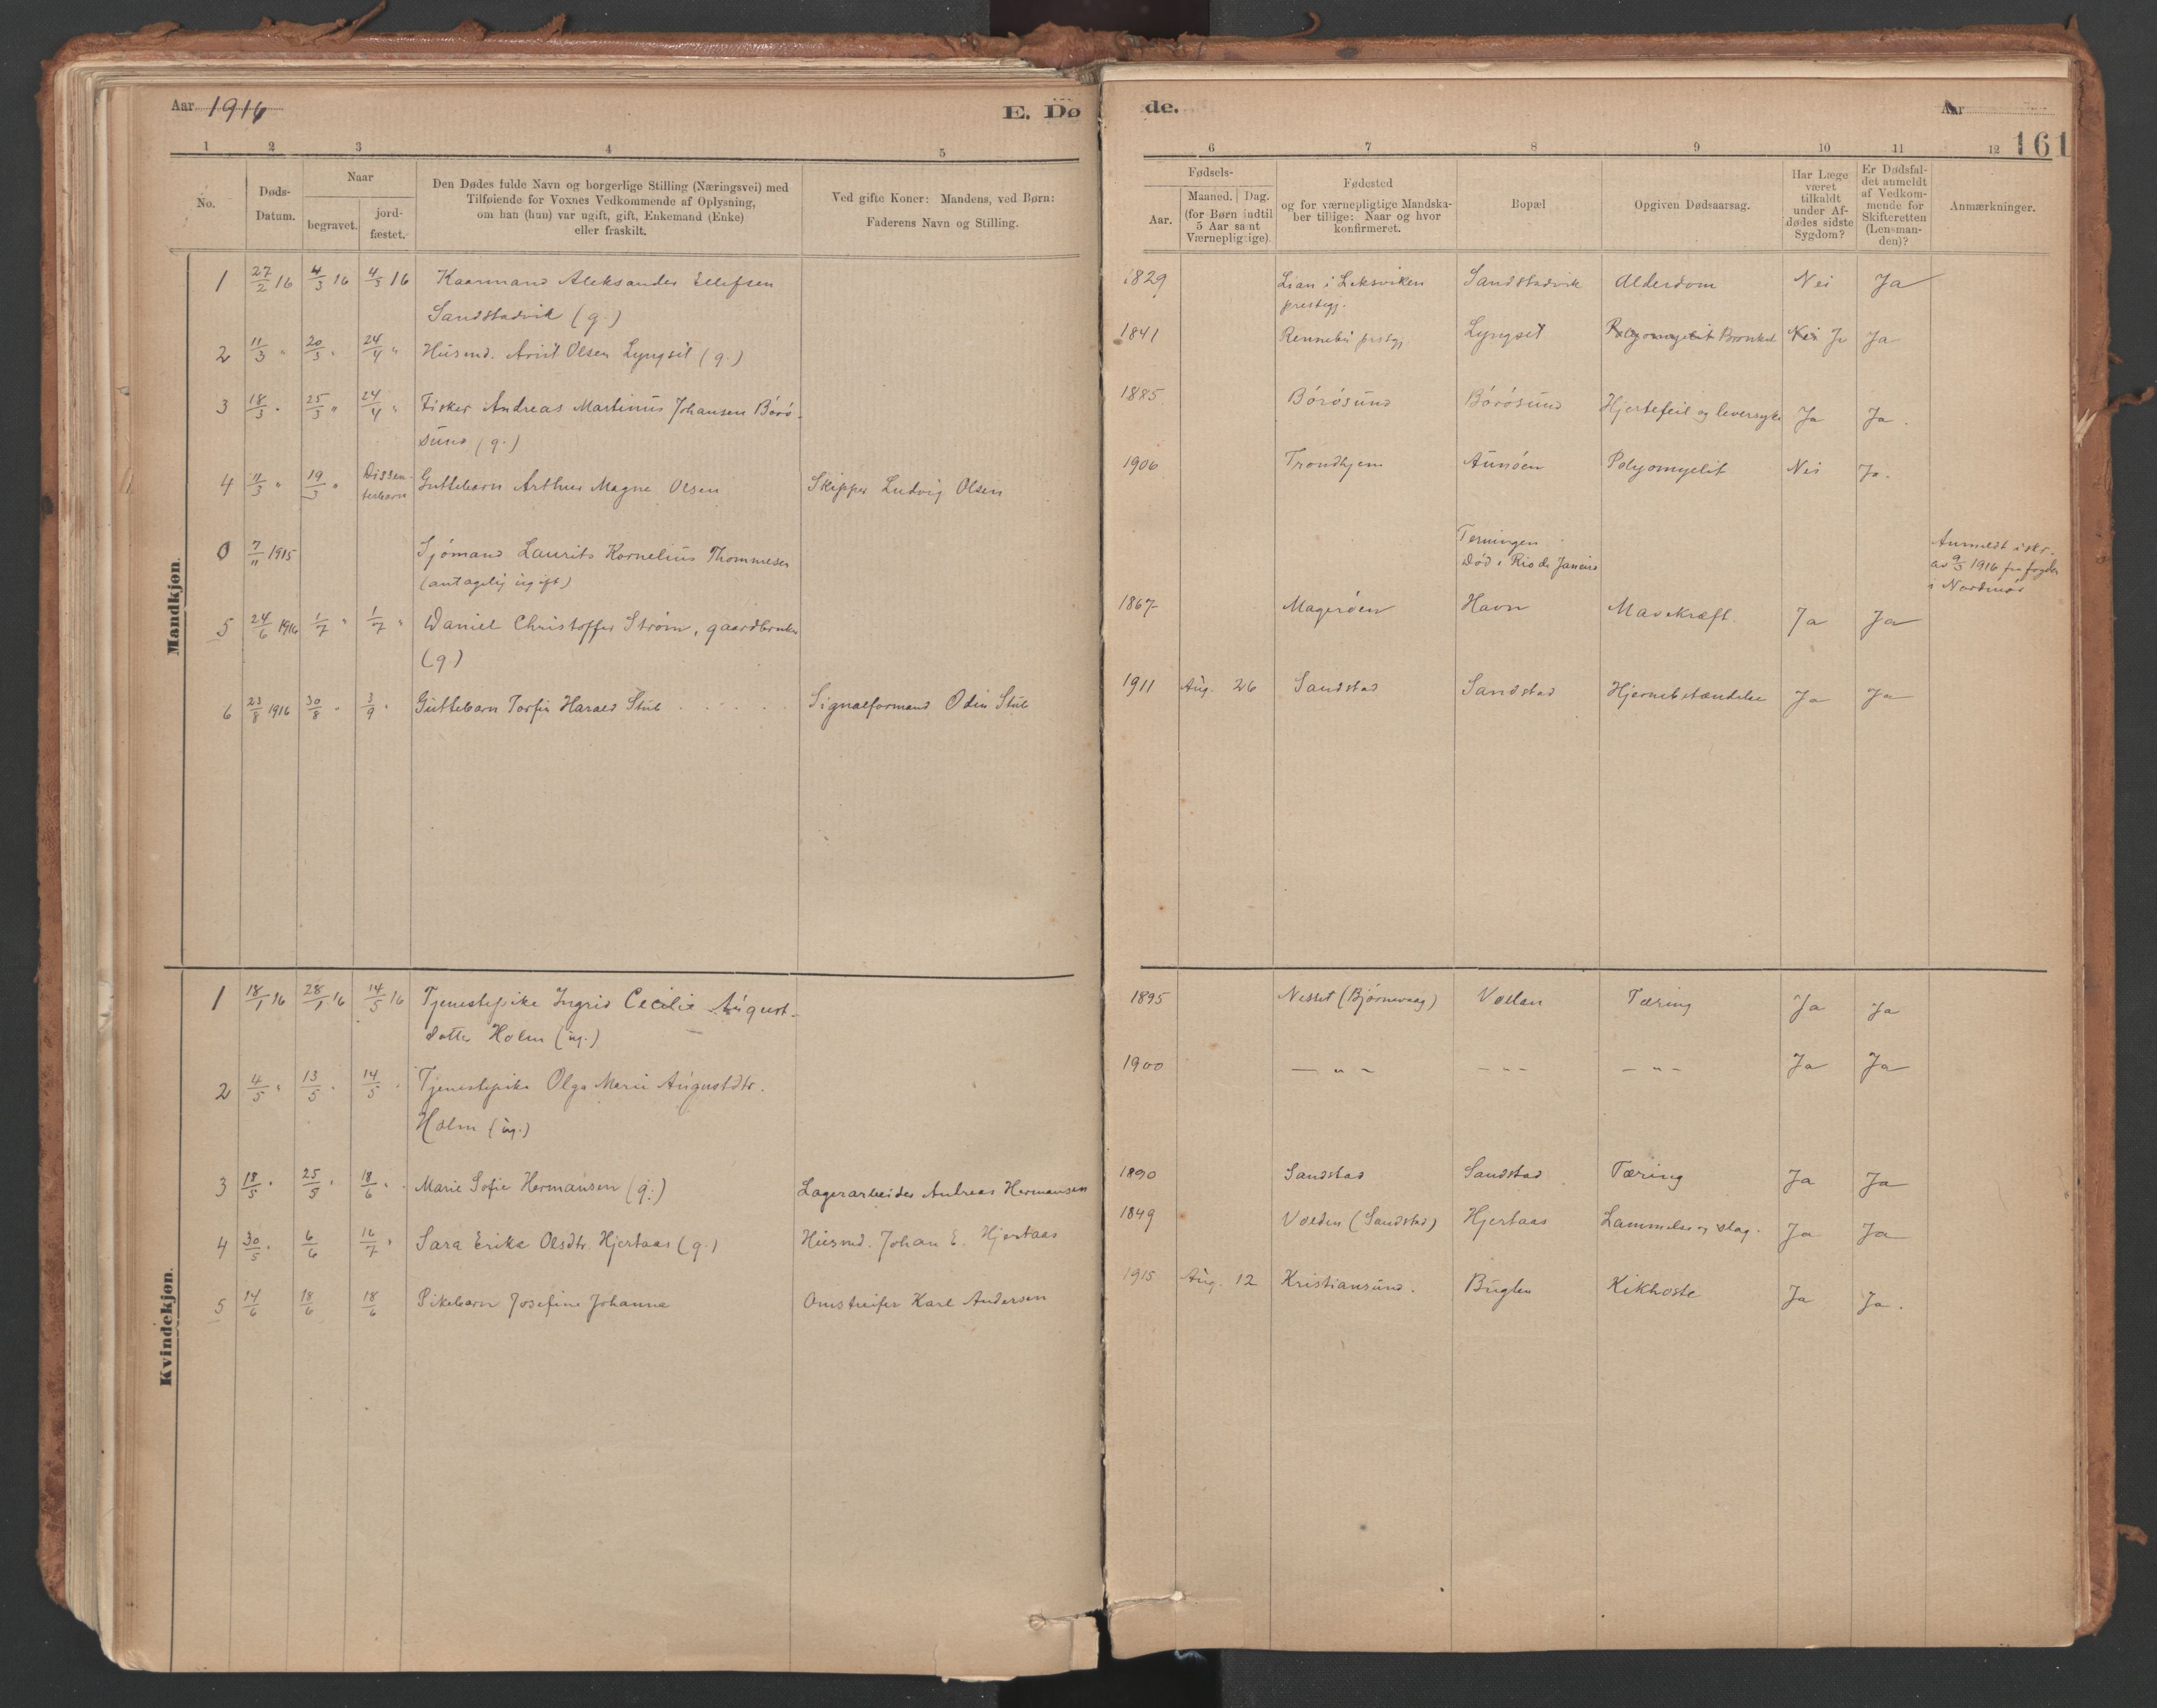 Aar 1916
E. Dø
de.
Aar
161
1 2 3 4 5
6 7 8 9 10 11 12
No.
Døds-
Datum.
Naar
begravet.
jord-
fæstet.
Den Dødes fulde Navn og borgerlige Stilling (Næringsvei) med
Tilføiende for Voxnes Vedkommende af Oplysning,
om han (hun) var ugift, gift, Enkemand (Enke)
eller fraskilt.
Ved gifte Koner: Mandens, ved Børn:
Faderens Navn og Stilling.
Fødsels-
Aar.
Maaned. Dag.
(for Børn indtil
5 Aar samt
Værnepligtige).
Fødested
og for værnepligtige Mandska-
ber tillige: Naar og hvor
konfirmeret.
Bopæl
Opgiven Dødsaarsag.
Har Læge
været
tilkaldt
under Af-
dødes sidste
Sygdom?
Er Dødsfal-
det anmeldt
af Vedkom-
mende for
Skifteretten
(Lensman-
den)?
Anmærkninger.
Mandkjøn.
1 27/2 16 4/3 16 4/3 16 Kaarmand Aleksander Ellefsen
Sandstadvik (g.)
1829 Lian i Leksviken
prestegj.
Sandstadvik Alderdom Nei Ja
2 11/3 " 20/3 " 24/4 " Husmd. Arnt Olsen Lyngsét (g.)
1841 Rennebu prstgj Lyngsét Polyomyelit Bronkit Nei Ja Ja
3 18/3 " 25/3 " 24/4 " Fisker Andreas Martinus Johansen Börö-
sund (g.)
1885 Börösund Börösund Hjertefeil og leversyke Ja Ja.
4 11/3 " 19/3 " Dissen-
terbarn
Guttebarn Arthur Magne Olsen Skipper Ludvig Olsen
1906 Trondhjem Aunöen Polyomyelit Nei Ja.
0 7/11 1915 Sjömand Laurits Kornelius Thommesen
(antagelig ugift)
Terningen
Död i Rio de Janeiro
Anmeldt i skr.
av 9/3 1916 fra fogden
i Nordmör
5 24/6 1916 1/7 " 1/7 " Daniel Christoffer Ström, gaardbruker
(g.)
1867 Mageröen Havn Mavekræft. Ja Ja
6 23/8 1916 30/8 " 3/9 " Guttebarn Torfin Harald Stub Signalformand Odin Stub
1911 Aug. 26 Sandstad Sandstad Hjernebetændelse Ja Ja
Kvindekjøn.
1 18/1 16 28/1 16 14/5 16 Tjenestepike Ingrid Cecilie August-
datter Holm (ug.)
1895 Nesset (Bjørnevaag) Vollan Tæring Ja Ja
2 4/5 " 13/5 " 14/5 " Tjenestepike Olga Marie Augustdtr.
Holm (ug.)
1900 — " — — " — — " — Ja Ja
3 18/5 " 25/5 " 18/6 " Marie Sofie Hermansen (g.) Lagerarbeider Andreas Hermansen
1890 Sandstad Sandstad Tæring Ja Ja
4 30/5 " 6/6 16/7 " Sara Erika Olsdtr. Hjertaas (g.) Husmd. Johan E. Hjertaas
1849 Volden (Sandstad) Hjertaas Lammelse og slag. Ja Ja
5 14/6 18/6 18/6 Pikebarn Josefine Johanna Omstreifer Karl Andersen
1915 Aug. 12 Kristiansund. Buglen Kikhoste Ja Ja.